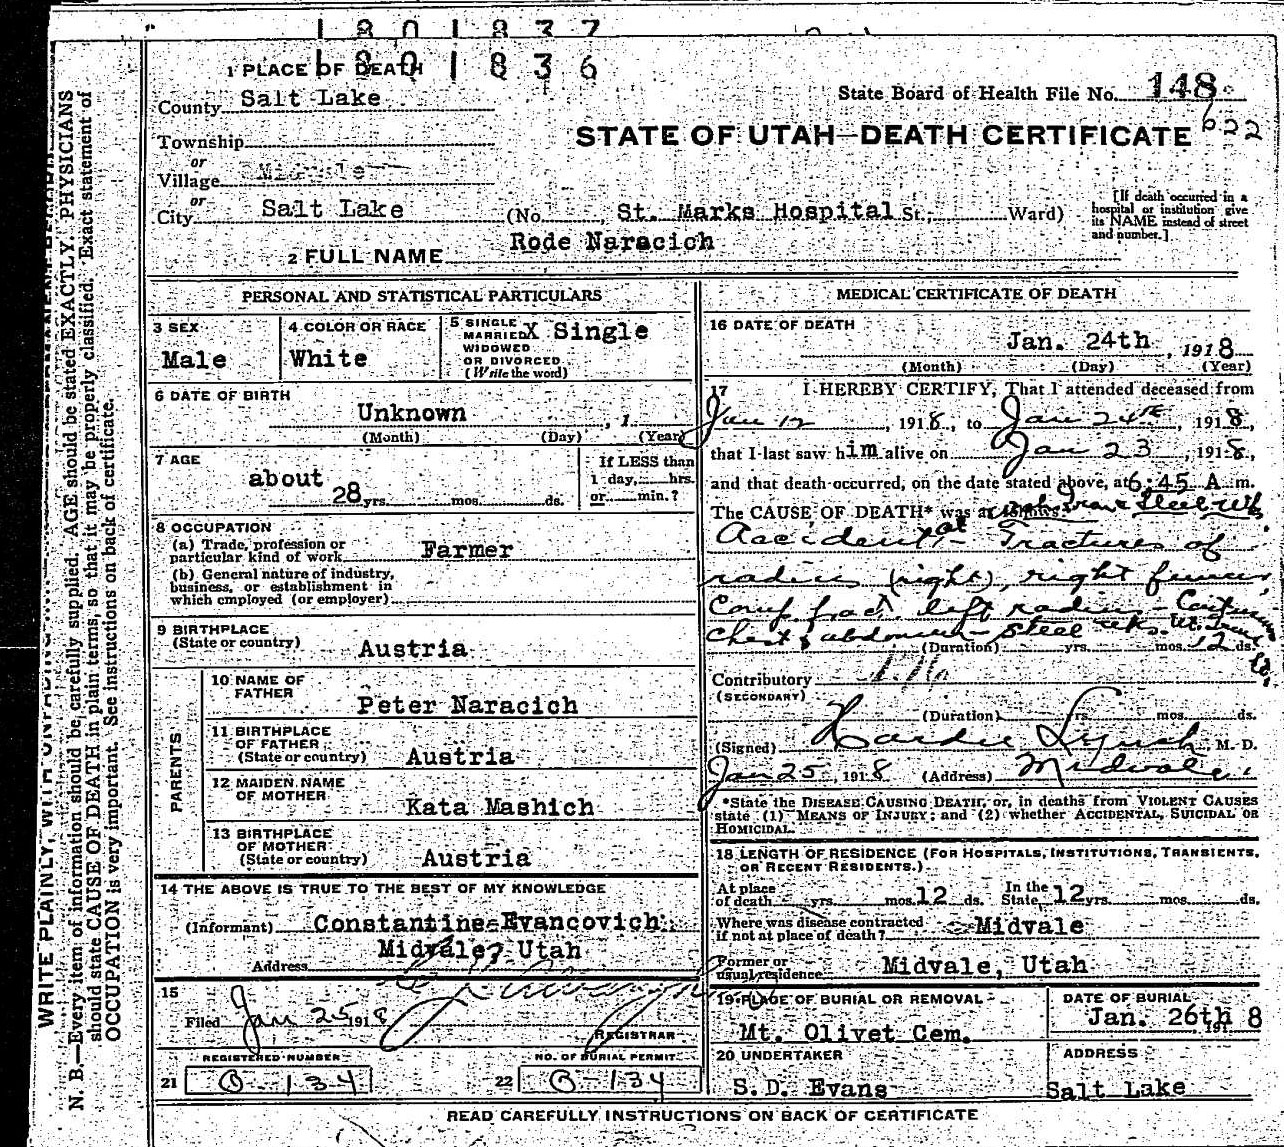 1801837
1801836
1 PLACE OF DEATH
County Salt Lake
State Board of Health File No. 148
622
STATE OF UTAH—DEATH CERTIFICATE
Township
or
Village Midvale
or
City Salt Lake (No. , St. Marks Hospital St.; Ward)
[If death occurred in a hospital or institution give its NAME instead of street and number.]
2 FULL NAME Rode Naracich
PERSONAL AND STATISTICAL PARTICULARS
3 SEX
Male
4 COLOR OR RACE
White
5 SINGLE X Single
MARRIED
WIDOWED
OR DIVORCED
(Write the word)
6 DATE OF BIRTH
Unknown , 1
(Month) (Day) (Year)
7 AGE
about
28 yrs. mos. ds.
If LESS than
1 day, hrs.
or min.?
8 OCCUPATION
(a) Trade, profession or
particular kind of work Farmer
(b) General nature of industry,
business, or establishment in
which employed (or employer)
9 BIRTHPLACE
(State or country) Austria
PARENTS
10 NAME OF
FATHER
Peter Naracich
11 BIRTHPLACE
OF FATHER
(State or country) Austria
12 MAIDEN NAME
OF MOTHER
Kata Mashich
13 BIRTHPLACE
OF MOTHER
(State or country) Austria
14 THE ABOVE IS TRUE TO THE BEST OF MY KNOWLEDGE
(Informant) Constantine Evancovich
Midvale, Utah
Address
15
Filed Jan 25 1918
REGISTRAR
REGISTERED NUMBER
21 O-134
NO. OF BURIAL PERMIT
22 O-134
MEDICAL CERTIFICATE OF DEATH
16 DATE OF DEATH
Jan. 24th , 1918
(Month) (Day) (Year)
17 I HEREBY CERTIFY, That I attended deceased from
Jan 12 , 1918, to Jan 24th , 1918,
that I last saw him alive on Jan 23 , 1918,
and that death occurred, on the date stated above, at 6:45 A m.
The CAUSE OF DEATH* was as follows: Steel Wks.
Accident at - Fractures of
radius (right), right femur,
Comp fract. left radius -
Chest & abdomen - Steel wks.
(Duration) yrs. mos. 12 ds.
Contributory
(SECONDARY)
(Duration) yrs. mos. ds.
(Signed) Hardie Lynch, M. D.
Jan 25, 1918 (Address) Midvale.
*State the DISEASE CAUSING DEATH, or, in deaths from VIOLENT CAUSES
state (1) MEANS OF INJURY; and (2) whether ACCIDENTAL, SUICIDAL OR
HOMICIDAL.
18 LENGTH OF RESIDENCE (FOR HOSPITALS, INSTITUTIONS, TRANSIENTS,
OR RECENT RESIDENTS.)
At place
of death yrs. mos. 12 ds.
In the
State, 12 yrs. mos. ds.
Where was disease contracted
if not at place of death? Midvale
Former or
usual residence Midvale, Utah
19 PLACE OF BURIAL OR REMOVAL
Mt. Olivet Cem.
DATE OF BURIAL
Jan. 26th 191 8
20 UNDERTAKER
S.D. Evans
ADDRESS
Salt Lake
READ CAREFULLY INSTRUCTIONS ON BACK OF CERTIFICATE
WRITE PLAINLY, WITH UNFADING
N. B.—Every item of information should be carefully supplied. AGE should be stated EXACTLY. PHYSICIANS
should state CAUSE OF DEATH in plain terms, so that it may be properly classified. Exact statement of
OCCUPATION is very important. See instructions on back of certificate.